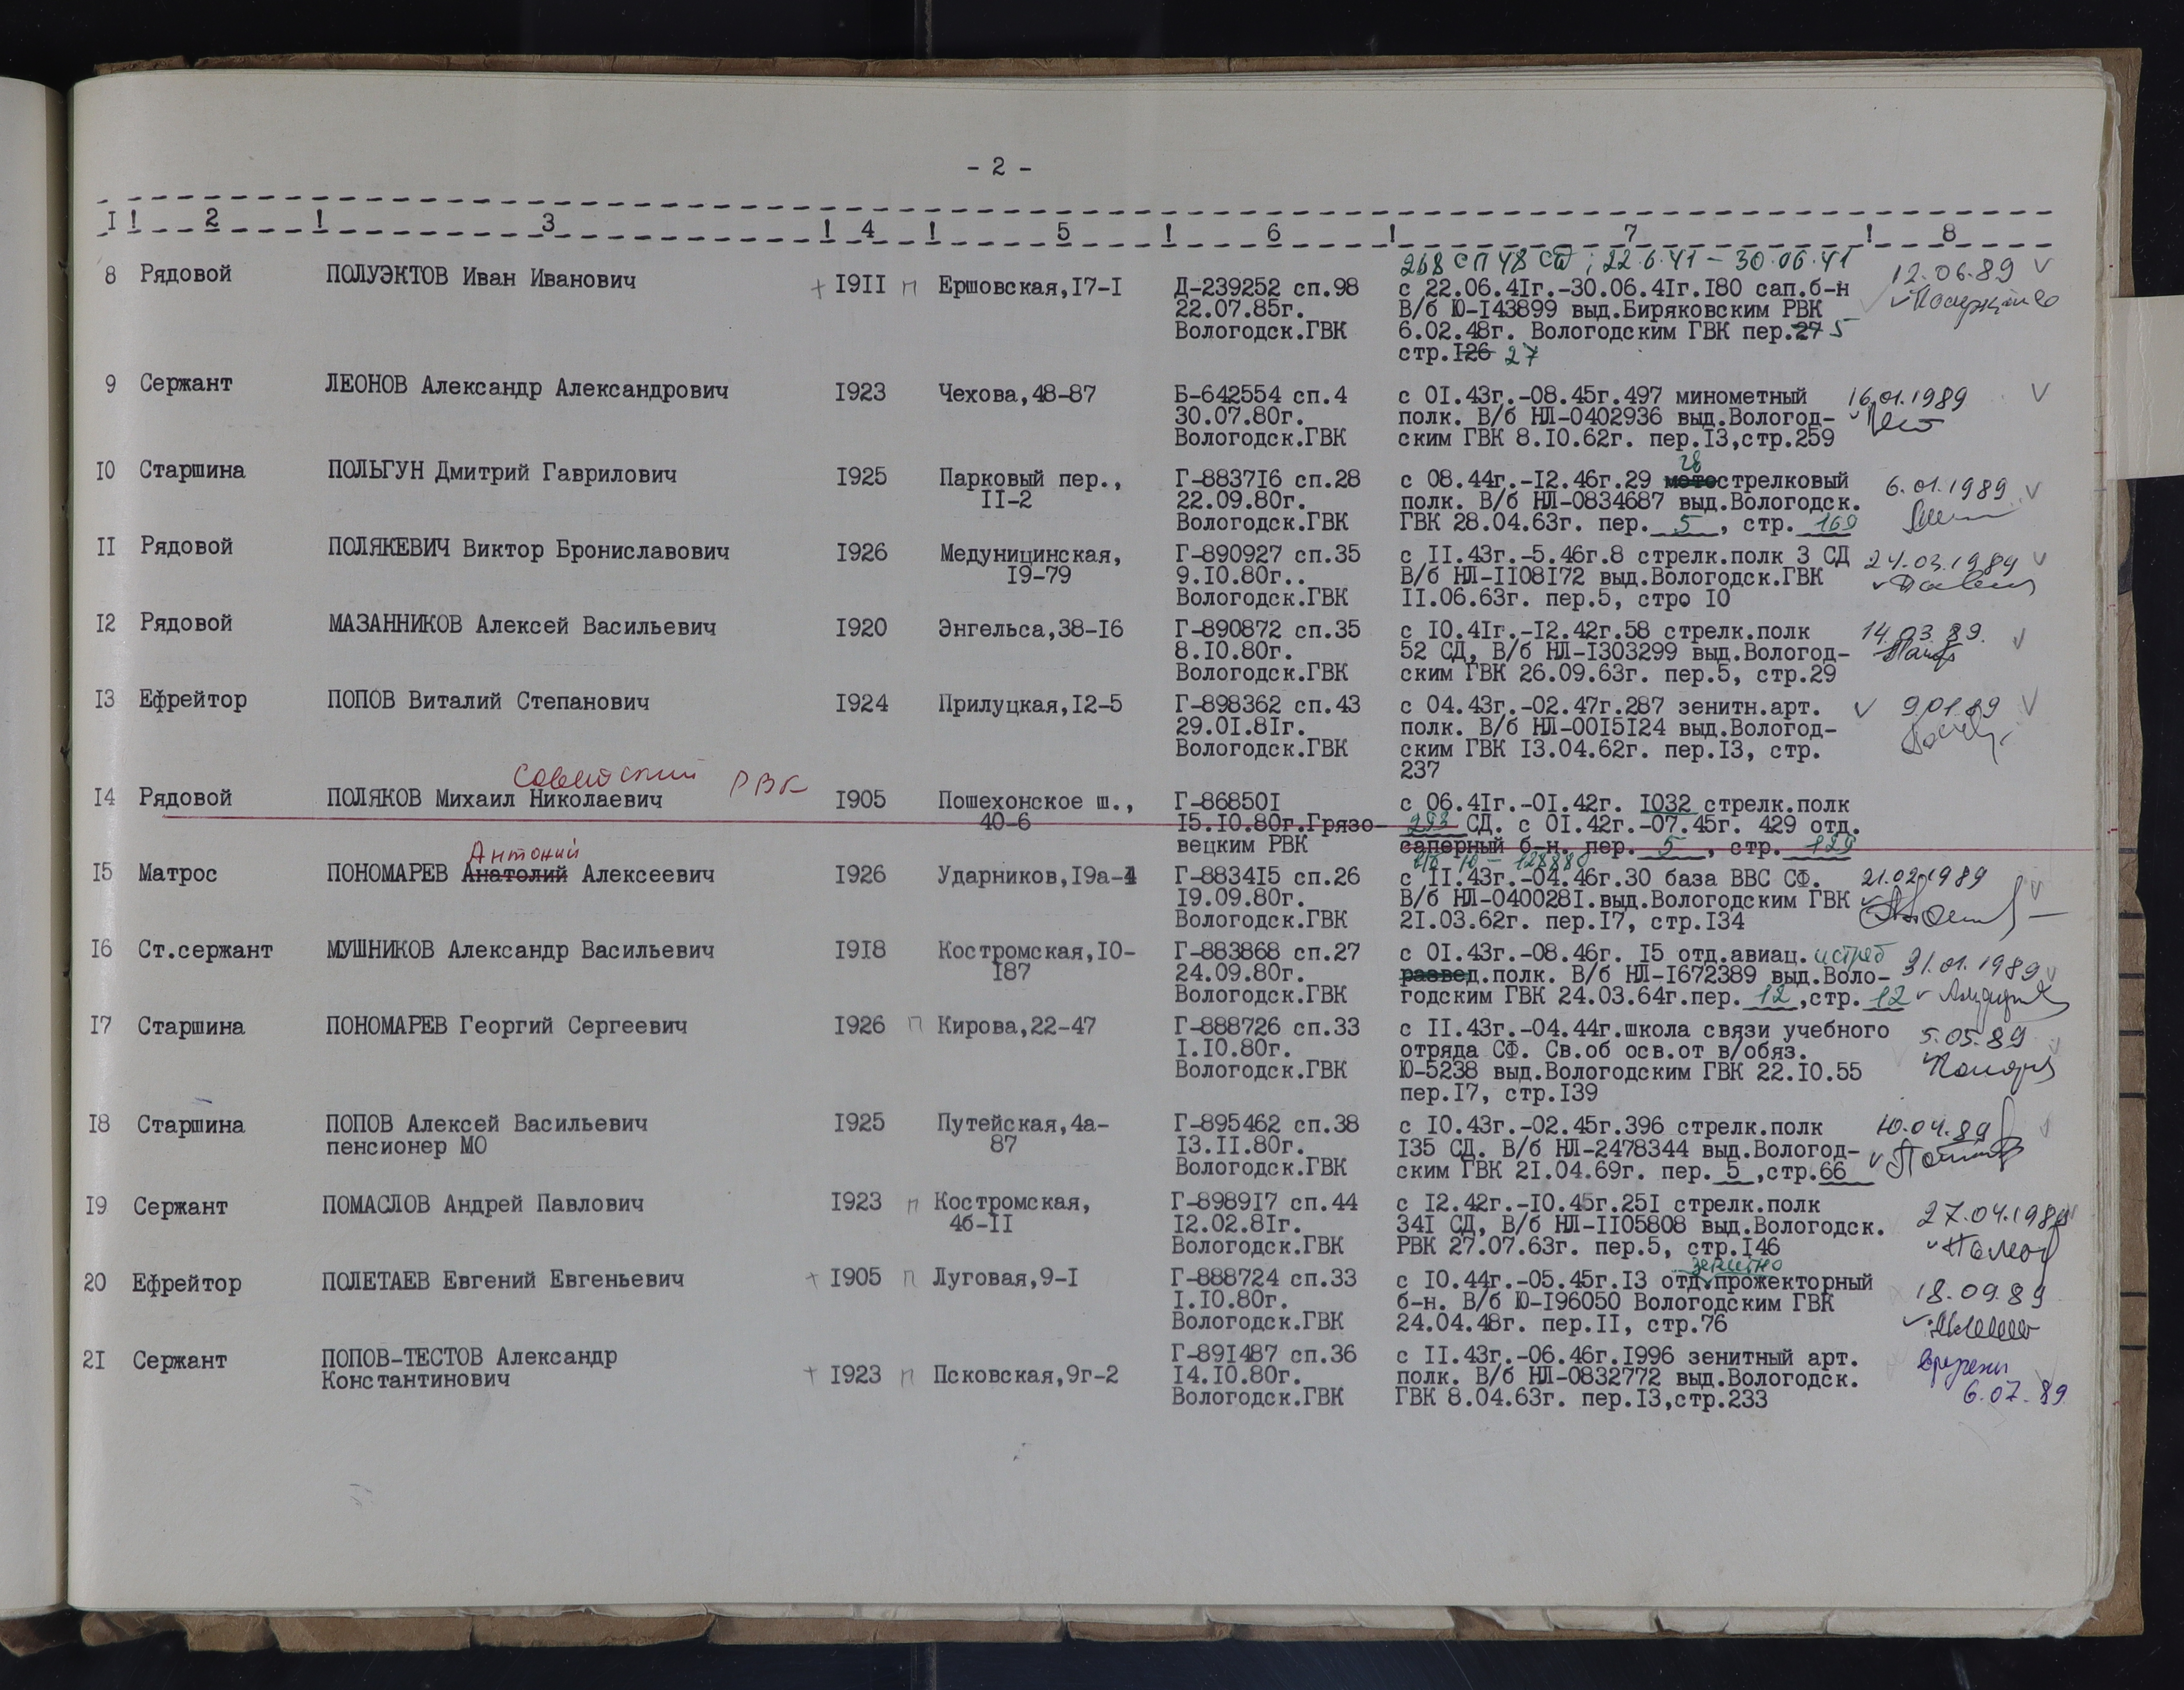 - 2 -
I ! 2 ! 3 ! 4 ! 5 ! 6 ! 7 ! 8
268 СП 48 СД ; 22.6.41 - 30.06.41
8 Рядовой ПОЛУЭКТОВ Иван Иванович + I9II п Ершовская,I7-I Д-239252 сп.98 с 22.06.4Iг.-30.06.4Iг.I80 сап.б-н 12.06.89 v
22.07.85г. В/б Ю-I43899 выд.Биряковским РВК
Вологодск.ГВК 6.02.48г. Вологодским ГВК пер.27 5
стр.I26 27
9 Сержант ЛЕОНОВ Александр Александрович I923 Чехова,48-87 Б-642554 сп.4 с 0I.43г.-08.45г.497 минометный 16.01.1989 v
30.07.80г. полк. В/б НЛ-0402936 выд.Вологод-
Вологодск.ГВК ским ГВК 8.I0.62г. пер.I3,стр.259
28
I0 Старшина ПОЛЬГУН Дмитрий Гаврилович I925 Парковый пер., Г-8837I6 сп.28 с 08.44г.-I2.46г.29 мотострелковый 6.01.1989 v
II-2 22.09.80г. полк. В/б НЛ-0834687 выд.Вологодск.
Вологодск.ГВК ГВК 28.04.63г. пер. 5 , стр. 169
II Рядовой ПОЛЯКЕВИЧ Виктор Брониславович I926 Медуницинская, Г-890927 сп.35 с II.43г.-5.46г.8 стрелк.полк 3 СД 24.03.1989 v
I9-79 9.I0.80г.. В/б НЛ-II08I72 выд.Вологодск.ГВК
Вологодск.ГВК II.06.63г. пер.5, стро I0
I2 Рядовой МАЗАННИКОВ Алексей Васильевич I920 Энгельса,38-I6 Г-890872 сп.35 с I0.4Iг.-I2.42г.58 стрелк.полк 14.03.89. v
8.I0.80г. 52 СД, В/б НЛ-I303299 выд.Вологод-
Вологодск.ГВК ским ГВК 26.09.63г. пер.5, стр.29
I3 Ефрейтор ПОПОВ Виталий Степанович I924 Прилуцкая,I2-5 Г-898362 сп.43 с 04.43г.-02.47г.287 зенитн.арт. v 9.01.89 v
29.0I.8Iг. полк. В/б НЛ-00I5I24 выд.Вологод-
Вологодск.ГВК ским ГВК I3.04.62г. пер.I3, стр.
237
Советский РВК
I4 Рядовой ПОЛЯКОВ Михаил Николаевич I905 Пошехонское ш., Г-86850I с 06.4Iг.-0I.42г. I032 стрелк.полк
40-6 I5.I0.80г.Грязо- 293 СД. с 0I.42г.-07.45г. 429 отд.
вецким РВК саперный б-н. пер. 5 , стр. 129
Антоний
I5 Матрос ПОНОМАРЕВ Анатолий Алексеевич I926 Ударников,I9а-4 Г-8834I5 сп.26 с II.43г.-04.46г.30 база ВВС СФ. 21.02.1989 v
I9.09.80г. В/б НЛ-040028I.выд.Вологодским ГВК
Вологодск.ГВК 2I.03.62г. пер.I7, стр.I34
I6 Ст.сержант МУШНИКОВ Александр Васильевич I9I8 Костромская,I0- Г-883868 сп.27 с 0I.43г.-08.46г. I5 отд.авиац. истреб 31.01.1989 v
I87 24.09.80г. развед.полк. В/б НЛ-I672389 выд.Воло-
Вологодск.ГВК годским ГВК 24.03.64г.пер. 12 ,стр. 12
I7 Старшина ПОНОМАРЕВ Георгий Сергеевич I926 п Кирова,22-47 Г-888726 сп.33 с II.43г.-04.44г.школа связи учебного 5.05.89 v
I.I0.80г. отряда СФ. Св.об осв.от в/обяз.
Вологодск.ГВК Ю-5238 выд.Вологодским ГВК 22.I0.55
пер.I7, стр.I39
I8 Старшина ПОПОВ Алексей Васильевич I925 Путейская,4а- Г-895462 сп.38 с I0.43г.-02.45г.396 стрелк.полк 10.04.89 v
пенсионер МО 87 I3.II.80г. I35 СД. В/б НЛ-2478344 выд.Вологод-
Вологодск.ГВК ским ГВК 2I.04.69г. пер. 5 ,стр.66
I9 Сержант ПОМАСЛОВ Андрей Павлович I923 п Костромская, Г-8989I7 сп.44 с I2.42г.-I0.45г.25I стрелк.полк 27.04.1989
4б-II I2.02.8Iг. 34I СД, В/б НЛ-II05808 выд.Вологодск.
Вологодск.ГВК РВК 27.07.63г. пер.5, стр.I46
зенитно
20 Ефрейтор ПОЛЕТАЕВ Евгений Евгеньевич + I905 п Луговая,9-I Г-888724 сп.33 с I0.44г.-05.45г.I3 отд.прожекторный 18.09.89
I.I0.80г. б-н. В/б Ю-I96050 Вологодским ГВК
Вологодск.ГВК 24.04.48г. пер.II, стр.76
2I Сержант ПОПОВ-ТЕСТОВ Александр Г-89I487 сп.36 с II.43г.-06.46г.I996 зенитный арт.
Константинович + I923 п Псковская,9г-2 I4.I0.80г. полк. В/б НЛ-0832772 выд.Вологодск. 6.07.89
Вологодск.ГВК ГВК 8.04.63г. пер.I3,стр.233